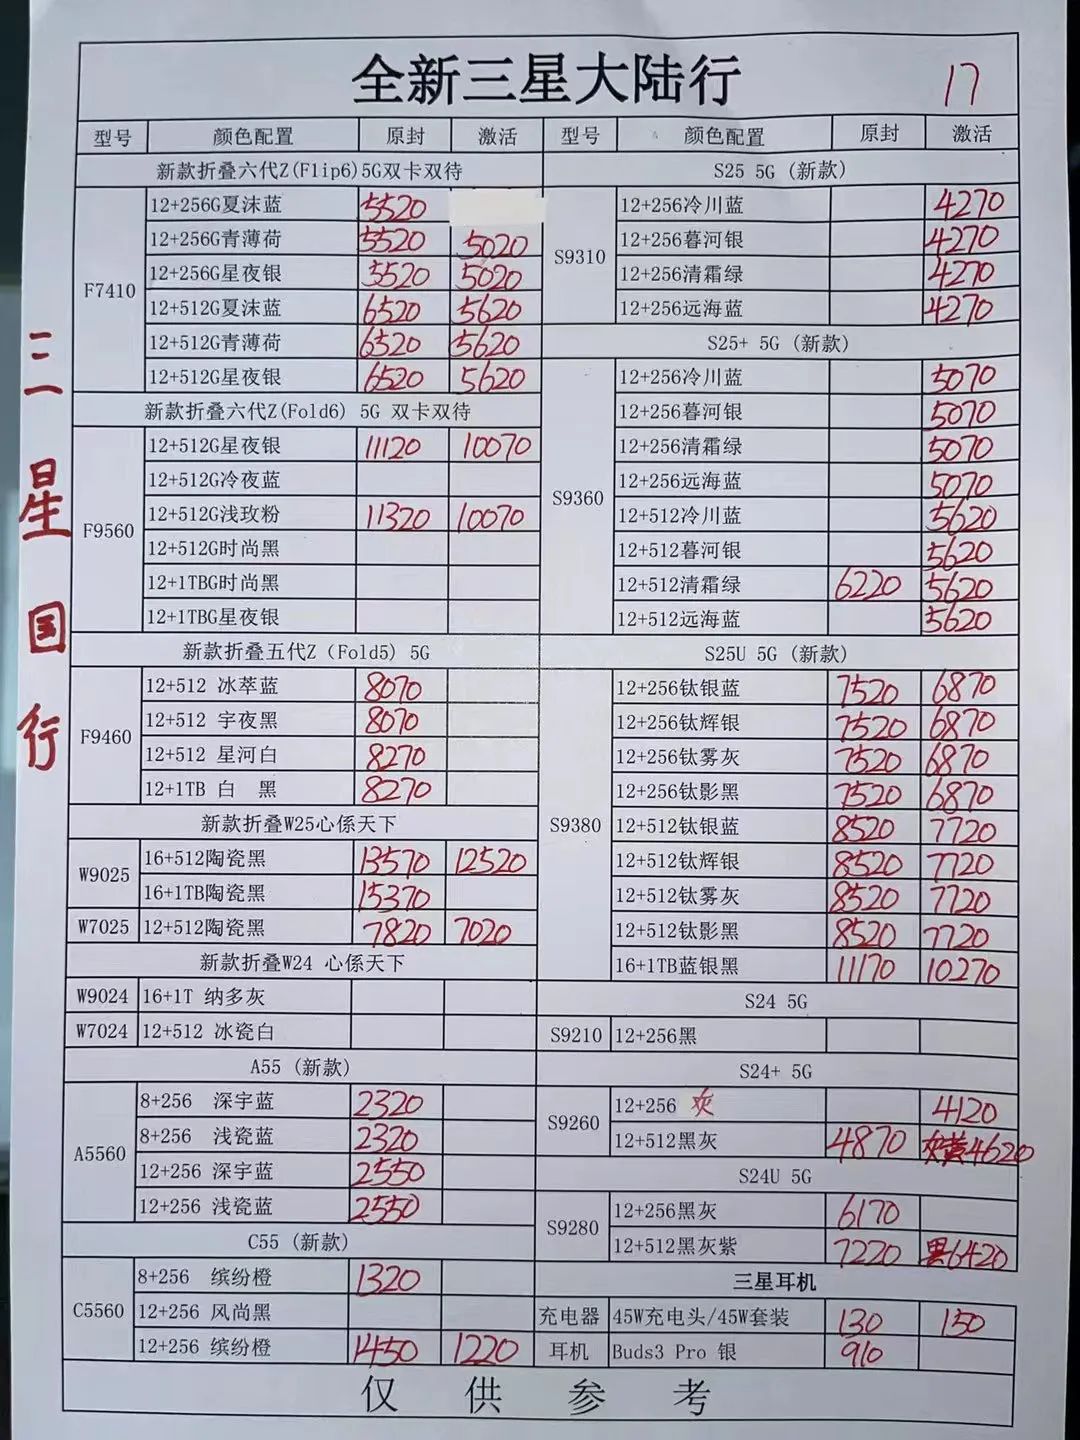 全新三星大陆行 17
三星国行
型号 颜色配置 原封 激活
新款折叠六代Z(Flip6)5G双卡双待
F7410
12+256G夏沫蓝 5520
12+256G青薄荷 5520 5020
12+256G星夜银 5520 5020
12+512G夏沫蓝 6520 5620
12+512G青薄荷 6520 5620
12+512G星夜银 6520 5620
新款折叠六代Z(Fold6) 5G 双卡双待
F9560
12+512G星夜银 11120 10070
12+512G冷夜蓝
12+512G浅玫粉 11320 10070
12+512G时尚黑
12+1TBG时尚黑
12+1TBG星夜银
新款折叠五代Z（Fold5）5G
F9460
12+512 冰萃蓝 8070
12+512 宇夜黑 8070
12+512 星河白 8270
12+1TB 白 黑 8270
新款折叠W25心係天下
W9025
16+512陶瓷黑 13570 12520
16+1TB陶瓷黑 15370
W7025 12+512陶瓷黑 7820 7020
新款折叠W24 心係天下
W9024 16+1T 纳多灰
W7024 12+512 冰瓷白
A55（新款）
A5560
8+256 深宇蓝 2320
8+256 浅瓷蓝 2320
12+256 深宇蓝 2550
12+256 浅瓷蓝 2550
C55（新款）
C5560
8+256 缤纷橙 1320
12+256 风尚黑
12+256 缤纷橙 1450 1220
型号 颜色配置 原封 激活
S25 5G（新款）
S9310
12+256冷川蓝 4270
12+256暮河银 4270
12+256清霜绿 4270
12+256远海蓝 4270
S25+ 5G（新款）
S9360
12+256冷川蓝 5070
12+256暮河银 5070
12+256清霜绿 5070
12+256远海蓝 5070
12+512冷川蓝 5620
12+512暮河银 5620
12+512清霜绿 6220 5620
12+512远海蓝 5620
S25U 5G（新款）
S9380
12+256钛银蓝 7520 6870
12+256钛辉银 7520 6870
12+256钛雾灰 7520 6870
12+256钛影黑 7520 6870
12+512钛银蓝 8520 7720
12+512钛辉银 8520 7720
12+512钛雾灰 8520 7720
12+512钛影黑 8520 7720
16+1TB蓝银黑 11170 10270
S24 5G
S9210 12+256黑
S24+ 5G
S9260
12+256 灰 4120
12+512黑灰 4870 灰黄4620
S24U 5G
S9280
12+256黑灰 6170
12+512黑灰紫 7220 黑6420
三星耳机
充电器 45W充电头/45W套装 130 150
耳机 Buds3 Pro 银 910
仅供参考